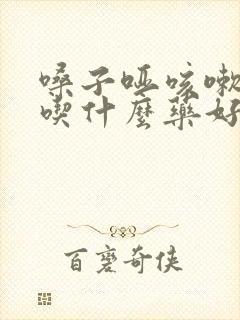 嗓子哑咳嗽
喫什麼藥好
百変奇侠